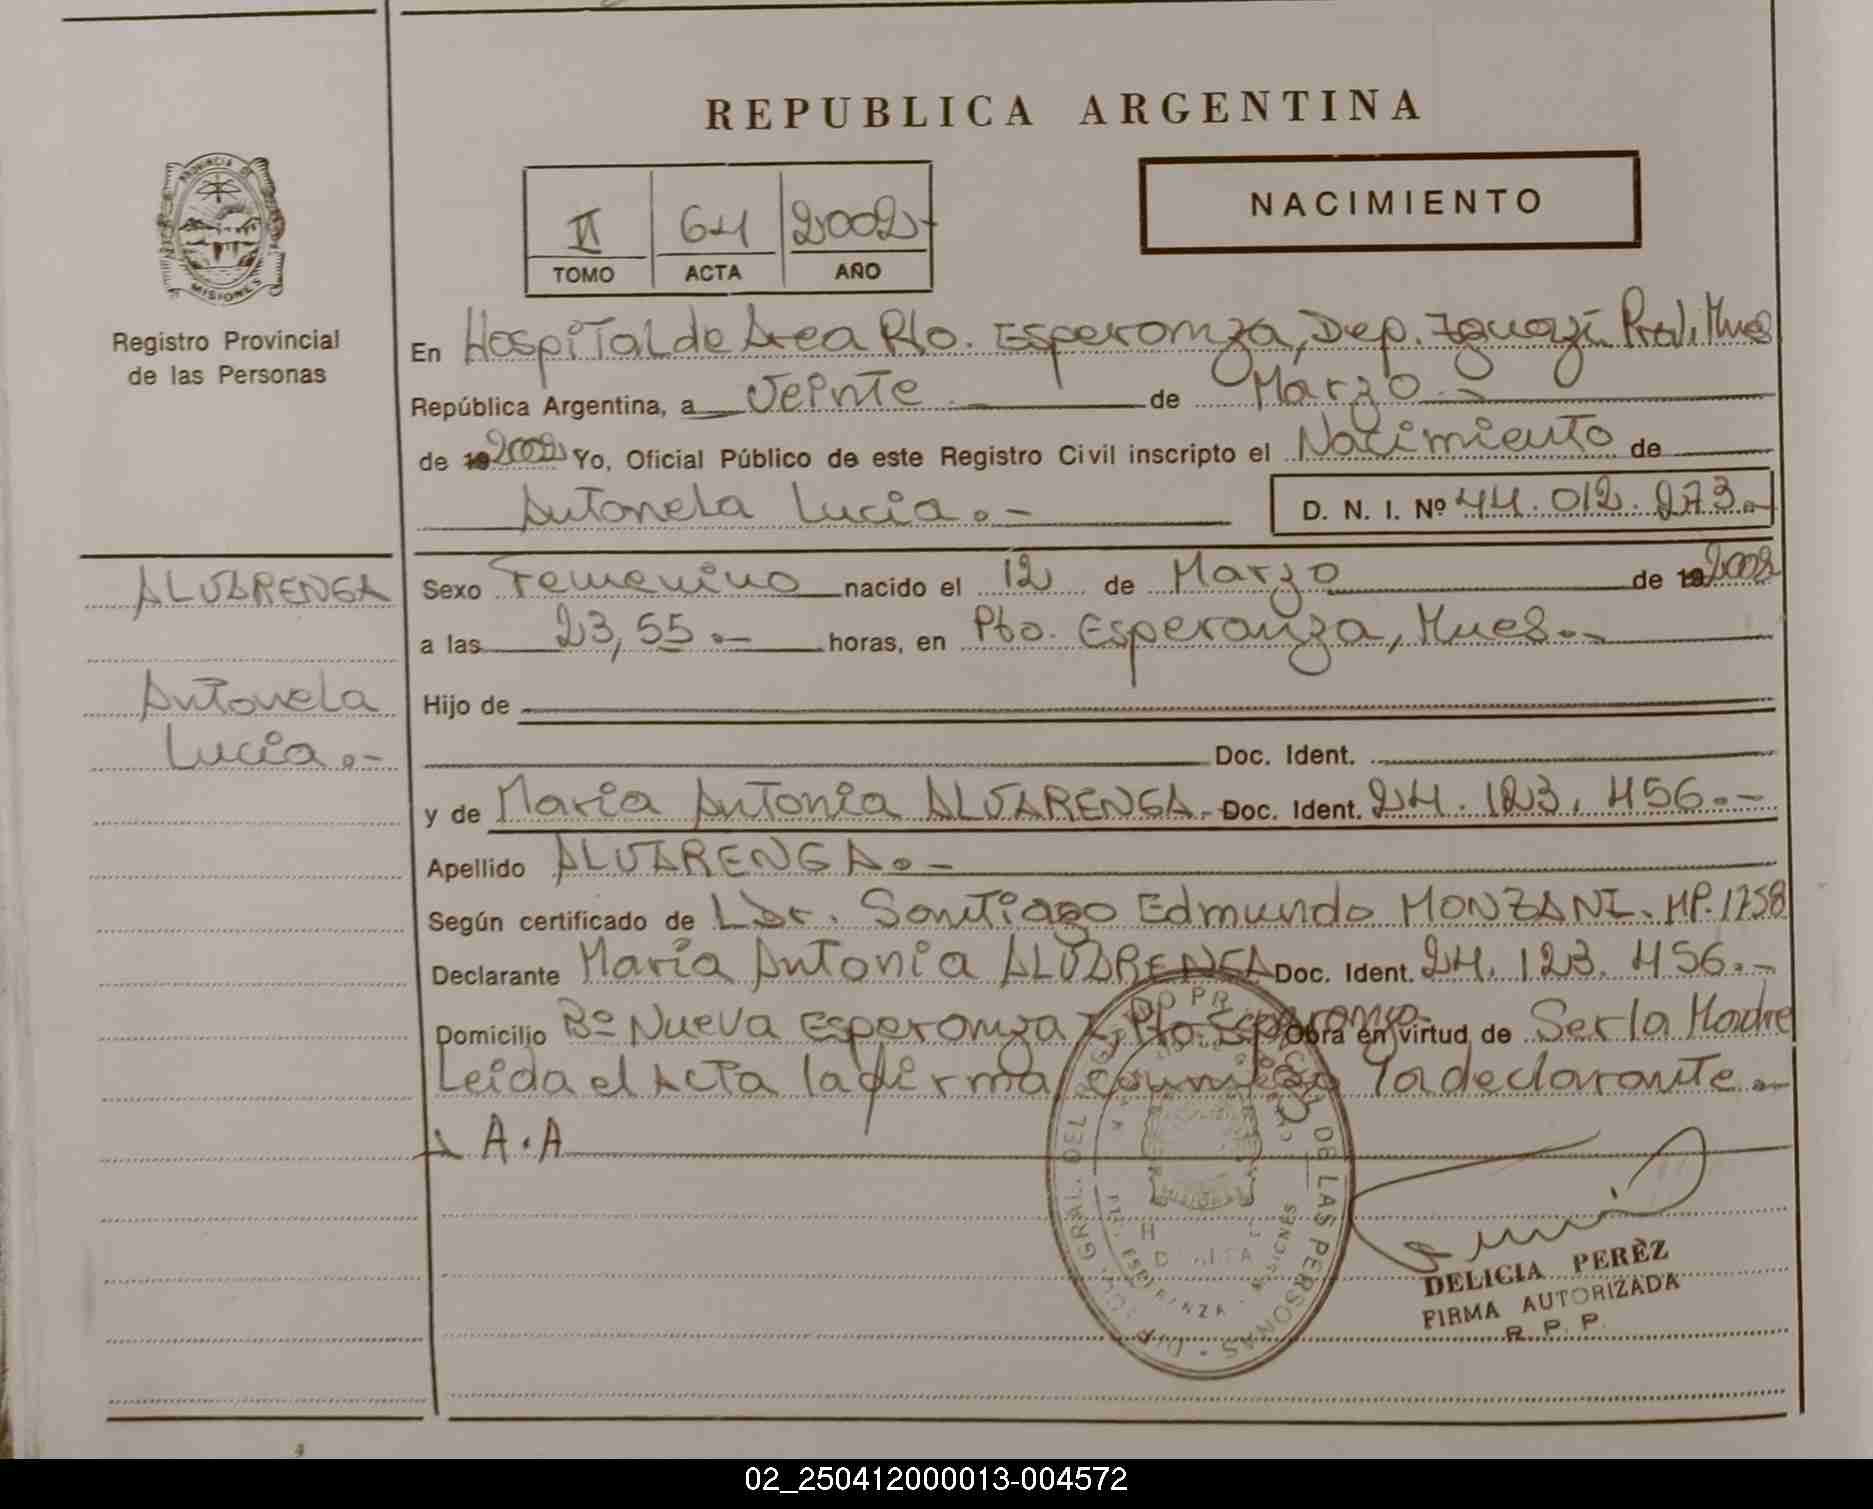 REPUBLICA ARGENTINA
NACIMIENTO
II 64 2002-
TOMO ACTA AÑO
PROVINCIA DE MISIONES
Registro Provincial
de las Personas
En Hospital de Area Pto. Esperanza, Dep. Iguazú Prov. Mnes
República Argentina, a Veinte de Marzo.-
de 19 2002 Yo, Oficial Público de este Registro Civil inscripto el Nacimiento de
Antonela Lucia.- D. N. I. Nº 44.012.273.-
ALVARENGA
Antonela
Lucia.-
Sexo Femenino nacido el 12 de Marzo de 19 2002
a las 23,55.- horas, en Pto. Esperanza, Mnes.-
Hijo de
Doc. Ident.
y de Maria Antonia ALVARENGA.- Doc. Ident. 24.123.456.-
Apellido ALVARENGA.-
Según certificado de Santiago Edmundo MONZANI. MP. 1758
Declarante María Antonia ALVARENGA Doc. Ident. 24.123.456.-
Domicilio Bº Nueva Esperanza Pto. Esperanza Obra en virtud de Ser la Madre
Leida el Acta la firma conmigo la declarante.-
A.A
DE LAS PERSONAS
DELICIA PERÈZ
FIRMA AUTORIZADA
R. P. P.
02_250412000013-004572